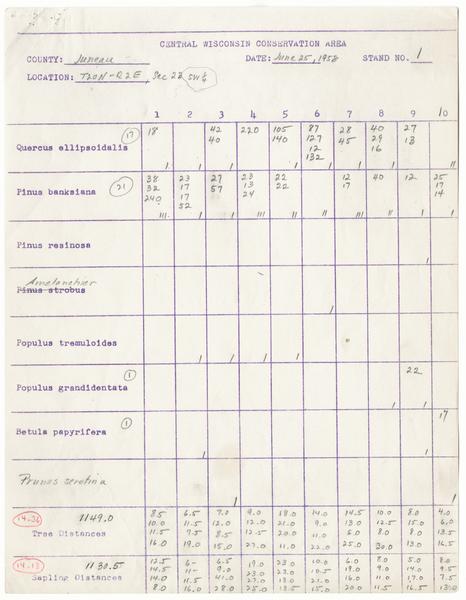 CENTRAL WISCONSIN CONSERVATION AREA
COUNTY: Juneau DATE: June 25, 1958 STAND NO. 1
LOCATION: T20N-R2E, Sec 28 SW¼
1 2 3 4 5 6 7 8 9 10
Quercus ellipsoidalis 17
18 42 220 105 87 28 40 27
40 140 127 45 29 13
12 16
132
Pinus banksiana 21
38 23 27 23 22 12 40 12 25
32 17 57 13 22 17 17
240 17 24 14
52
Pinus resinosa
Amelanchier
Pinus strobus
Populus tremuloides
Populus grandidentata 1 22
Betula papyrifera 1 17
Prunus serotina
14.36 1149.0
Tree Distances
8.5 6.5 7.0 9.0 18.0 14.0 14.5 10.0 8.0 4.0
10.0 11.5 12.0 12.0 21.0 9.0 13.0 12.5 15.0 6.0
11.5 7.5 8.5 12.5 20.0 11.5 5.0 8.0 8.0 13.5
16.0 19.0 15.0 27.0 11.0 22.0 25.0 30.0 13.0 16.5
14.13 1130.5
Sapling Distances
12.5 6- 6.5 19.0 23.0 10.0 6.0 8.0 5.0 8.0
14.5 11- 9.0 23.0 23.0 10.5 19.0 9.0 14.0 9.5
14.0 11.5 41.0 27.0 13.0 21.0 16.0 11.0 17.0 7.5
8.0 16.0 28.0 25.0 13.5 15.0 20.0 11.5 16.5 13.0